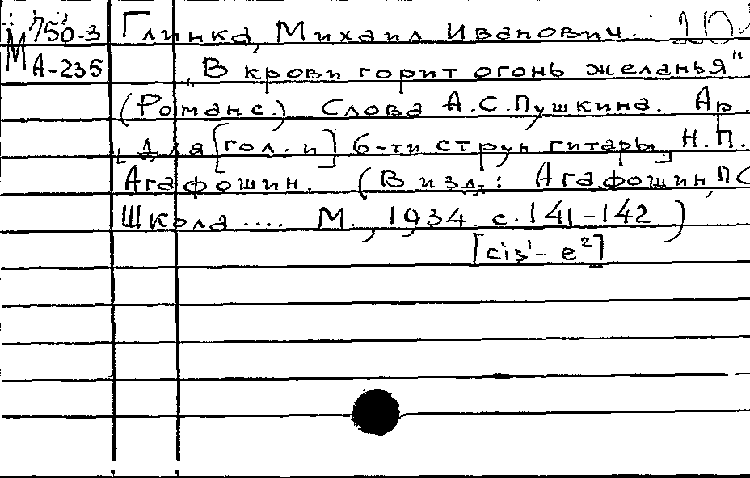 М 750-3 Глинка, Михаил Иванович. 10
А-235 „В крови горит огонь желанья"
(Романс.) Слова А.С.Пушкина. Ар
[для [гол. и] 6-ти струн гитары] Н.П.
Агафошин. (В изд.: Агафошин, ПС
Школа .... М., 1934 с. 141-142)
[cis¹- e²]